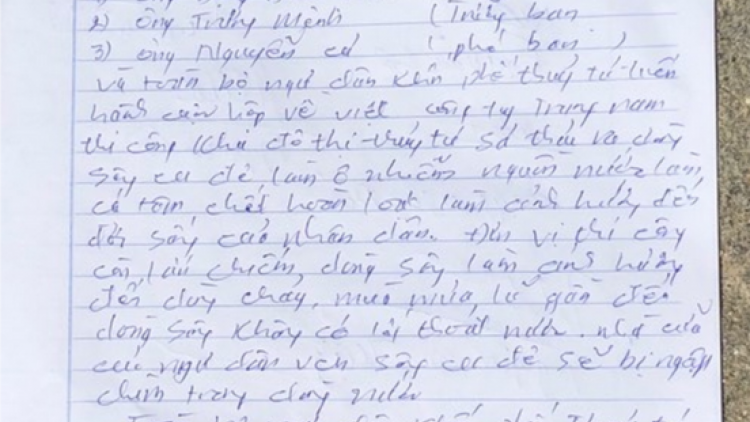 2) ông Trương Mạnh (Trưởng ban
3) ông Nguyễn cứ (phó ban)
và toàn bộ ngư dân khu phố thuỷ tú tiến
hành cuộc họp về việc công ty Trung nam
thi công khu đô thị thuỷ tú sả thải ra dòng
sông cu đê làm ô nhiễm nguồn nước làm
cá tôm chết hoàn loạt làm ảnh hưởng đến
đời sống của nhân dân. đơn vị phí cây
còn lấn chiếm dòng sông làm ảnh hưởng
đến dòng chảy. mùa mưa lũ gần đến
dòng sông không có lối thoát nước. nhà cửa
của ngư dân ven sông cu đê sẽ bị ngập
chìm trong dòng nước